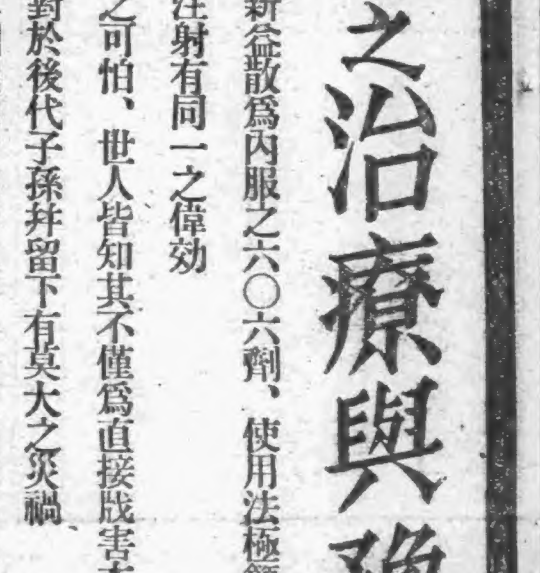 之治療與豫
新益散爲內服之六〇六劑、使用法極簡
注射有同一之偉効
之可怕、世人皆知其不僅爲直接戕害本
對於後代子孫幷留下有莫大之災禍、